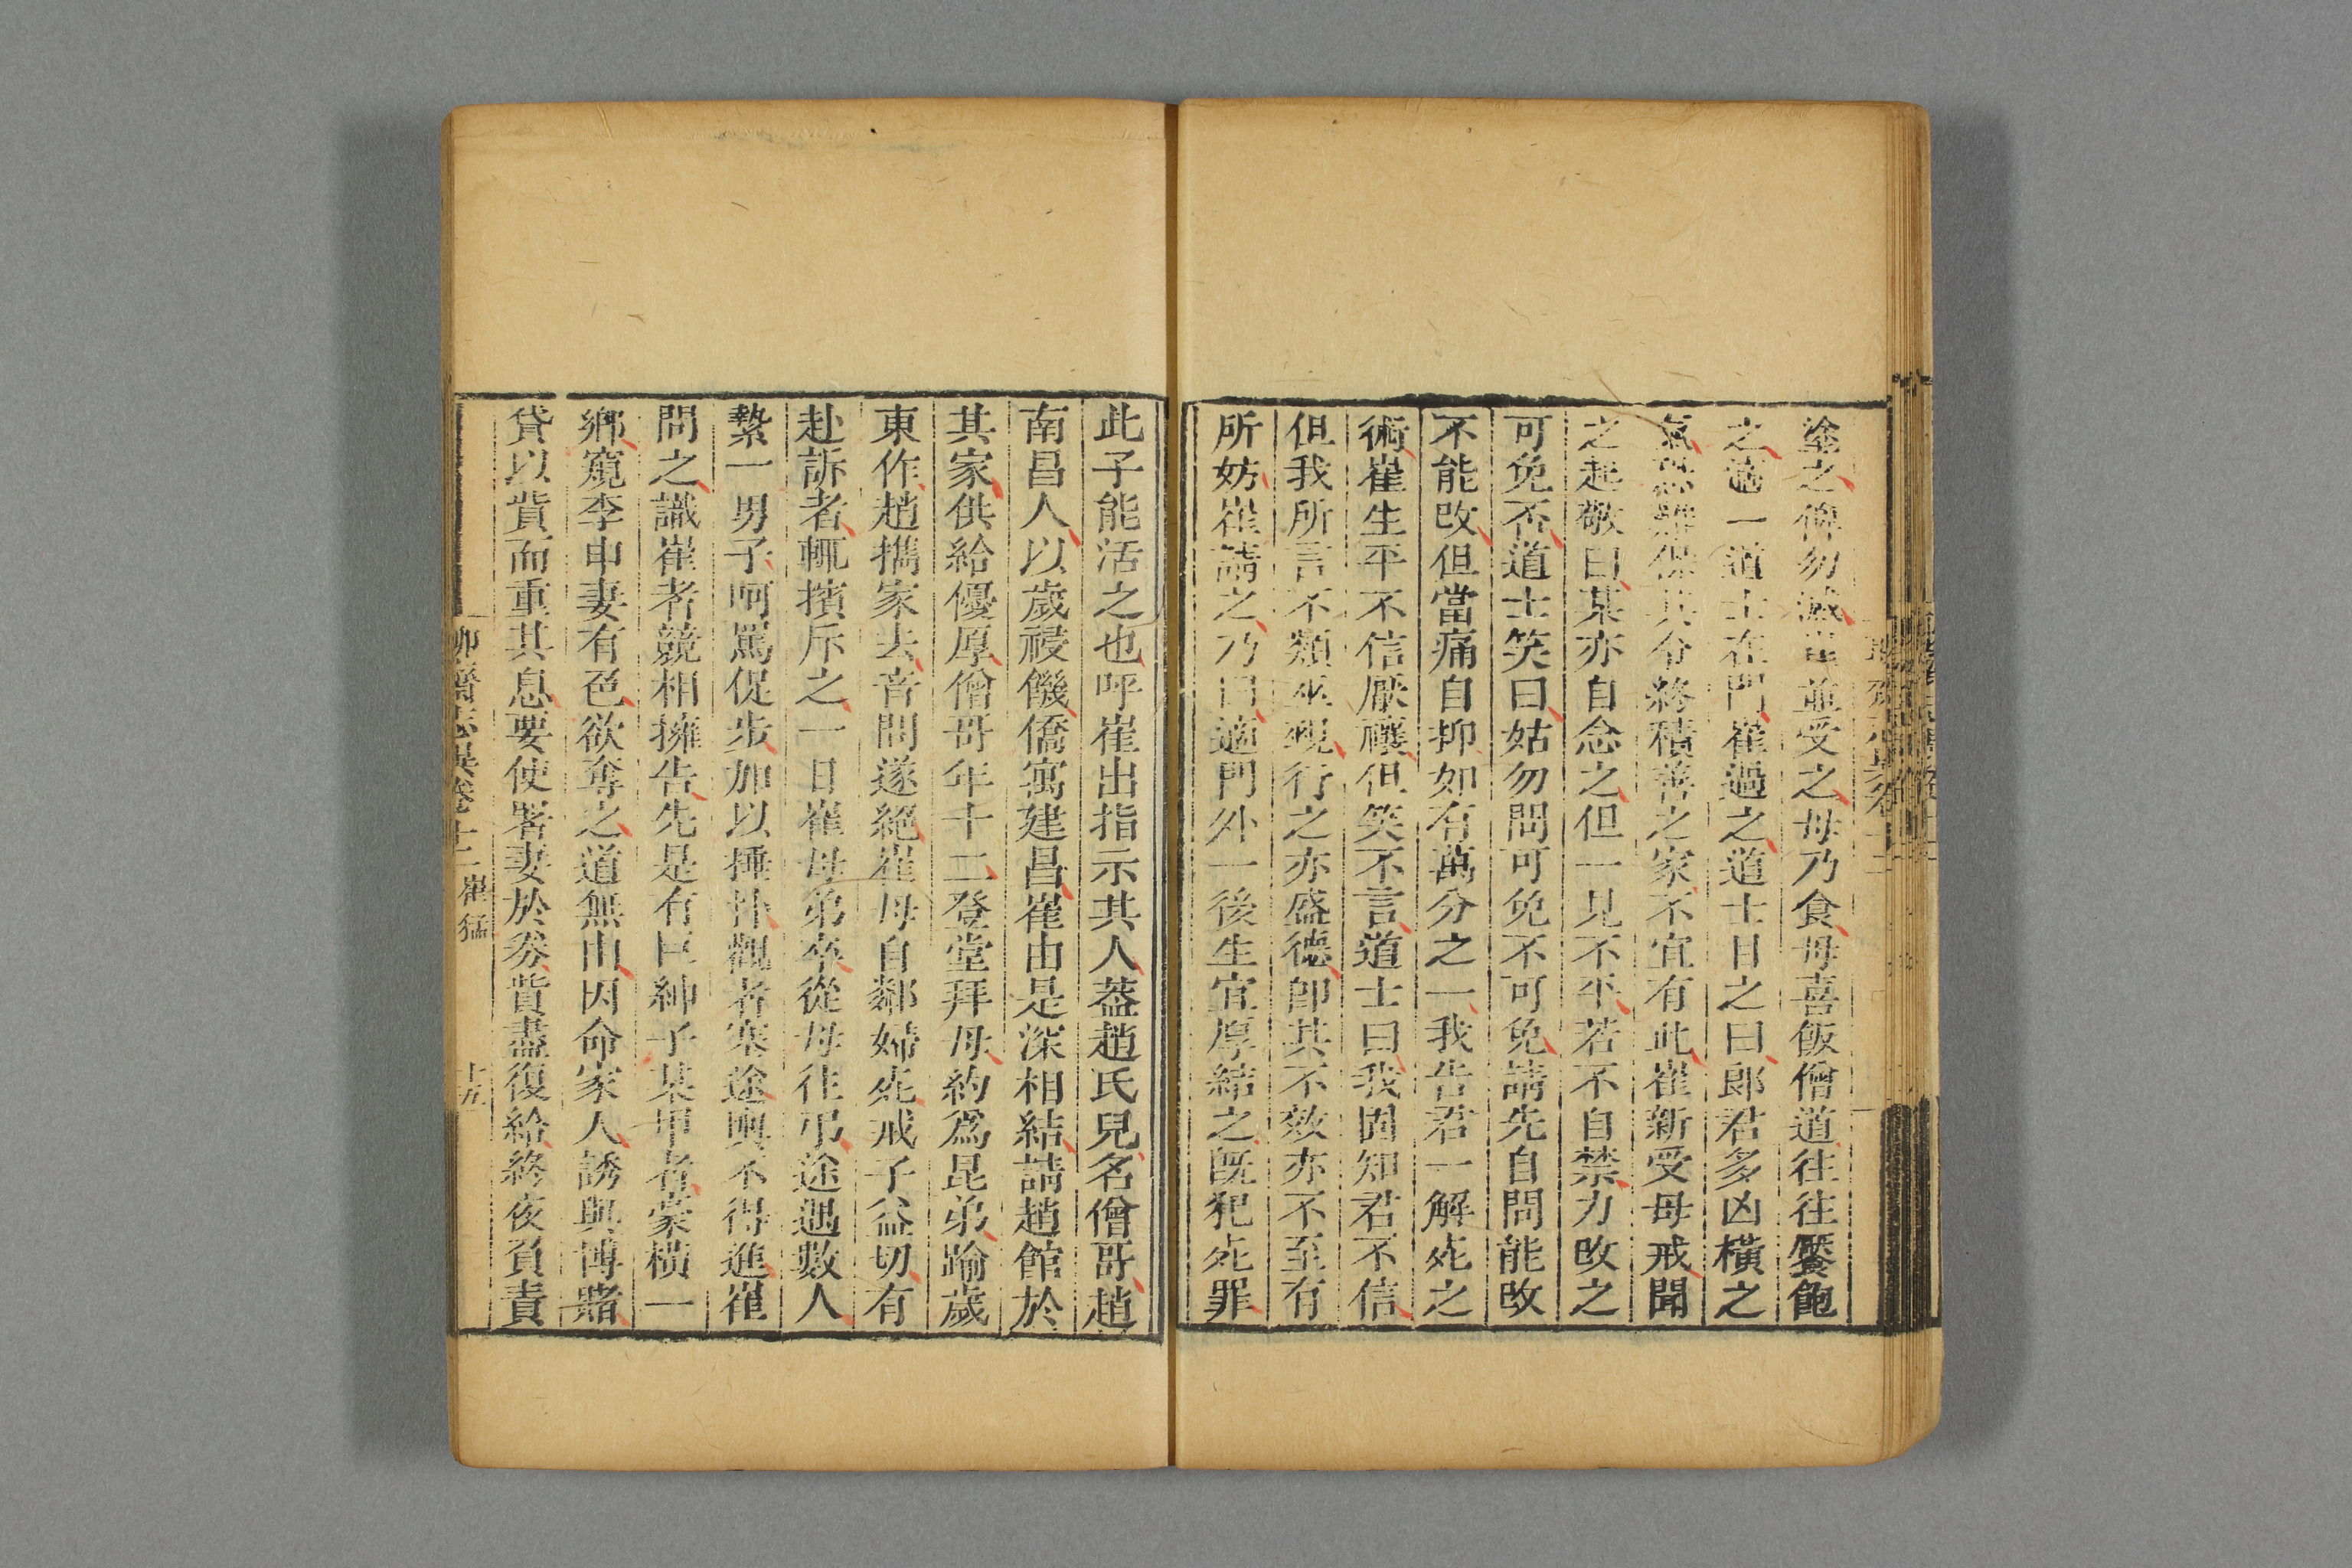 塗之俾勿滅崔並受之母乃食母喜飯僧道往往饜飽
之適一道士在門崔過之道士目之曰郎君多凶橫之
氣恐難保其令終積善之家不宜有此崔新受母戒聞
之起敬曰某亦自念之但一見不平若不自禁力改之
可免否道士笑曰姑勿問可免不可免請先自問能改
不能改但當痛自抑如有萬分之一我告君一解死之
術崔生平不信厭禳但笑不言道士曰我固知君不信
但我所言不類巫覡行之亦盛德即其不效亦不至有
所妨崔請之乃曰適門外一後生宜厚結之既犯死罪
此子能活之也呼崔出指示其人葢趙氏兒名僧哥趙
南昌人以歲祲饑僑寓建昌崔由是深相結請趙館於
其家供給優厚僧哥年十二登堂拜母約爲昆弟踰歲
東作趙攜家去音問遂絕崔母自鄰婦死戒子益切有
赴訴者輒擯斥之一日崔母弟卒從母往弔途遇數人
縶一男子呵罵促步加以捶扑觀者塞途輿不得進崔
問之識崔者競相擁告先是有巨紳子某甲者豪橫一
鄉窺李申妻有色欲奪之道無由因命家人誘與博賭
貸以貲而重其息要使署妻於券貲盡復給終夜負責
聊齋志異卷十二 崔猛 十五